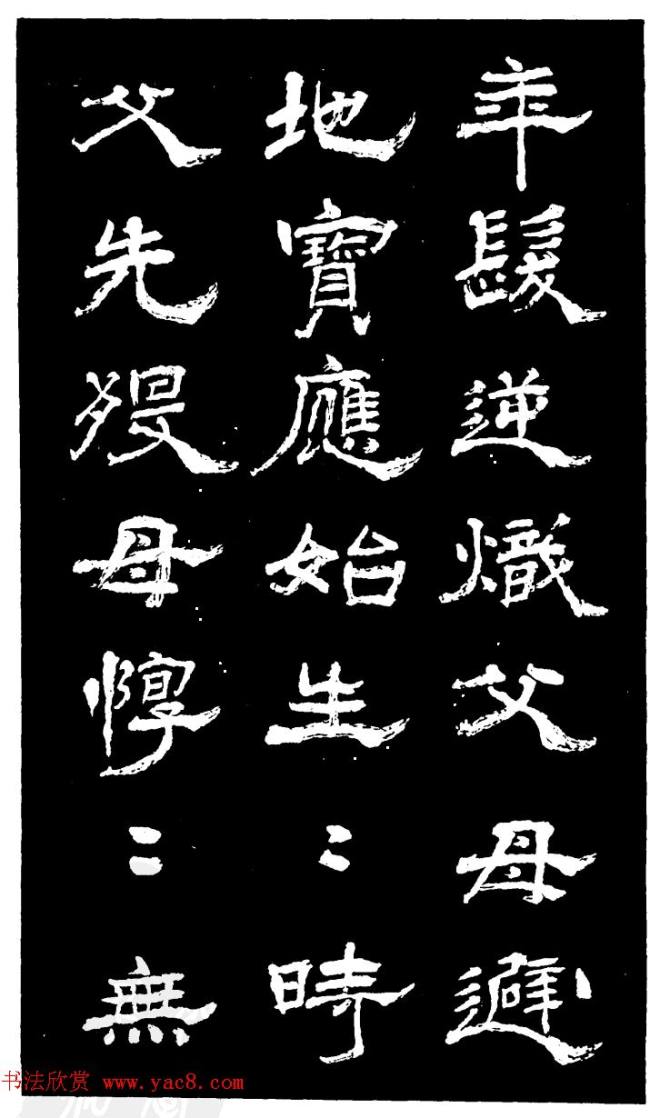 年髮逆熾父母避
地寶應始生〻時
父先歿母惸〻無
书法欣赏 www.yac8.com